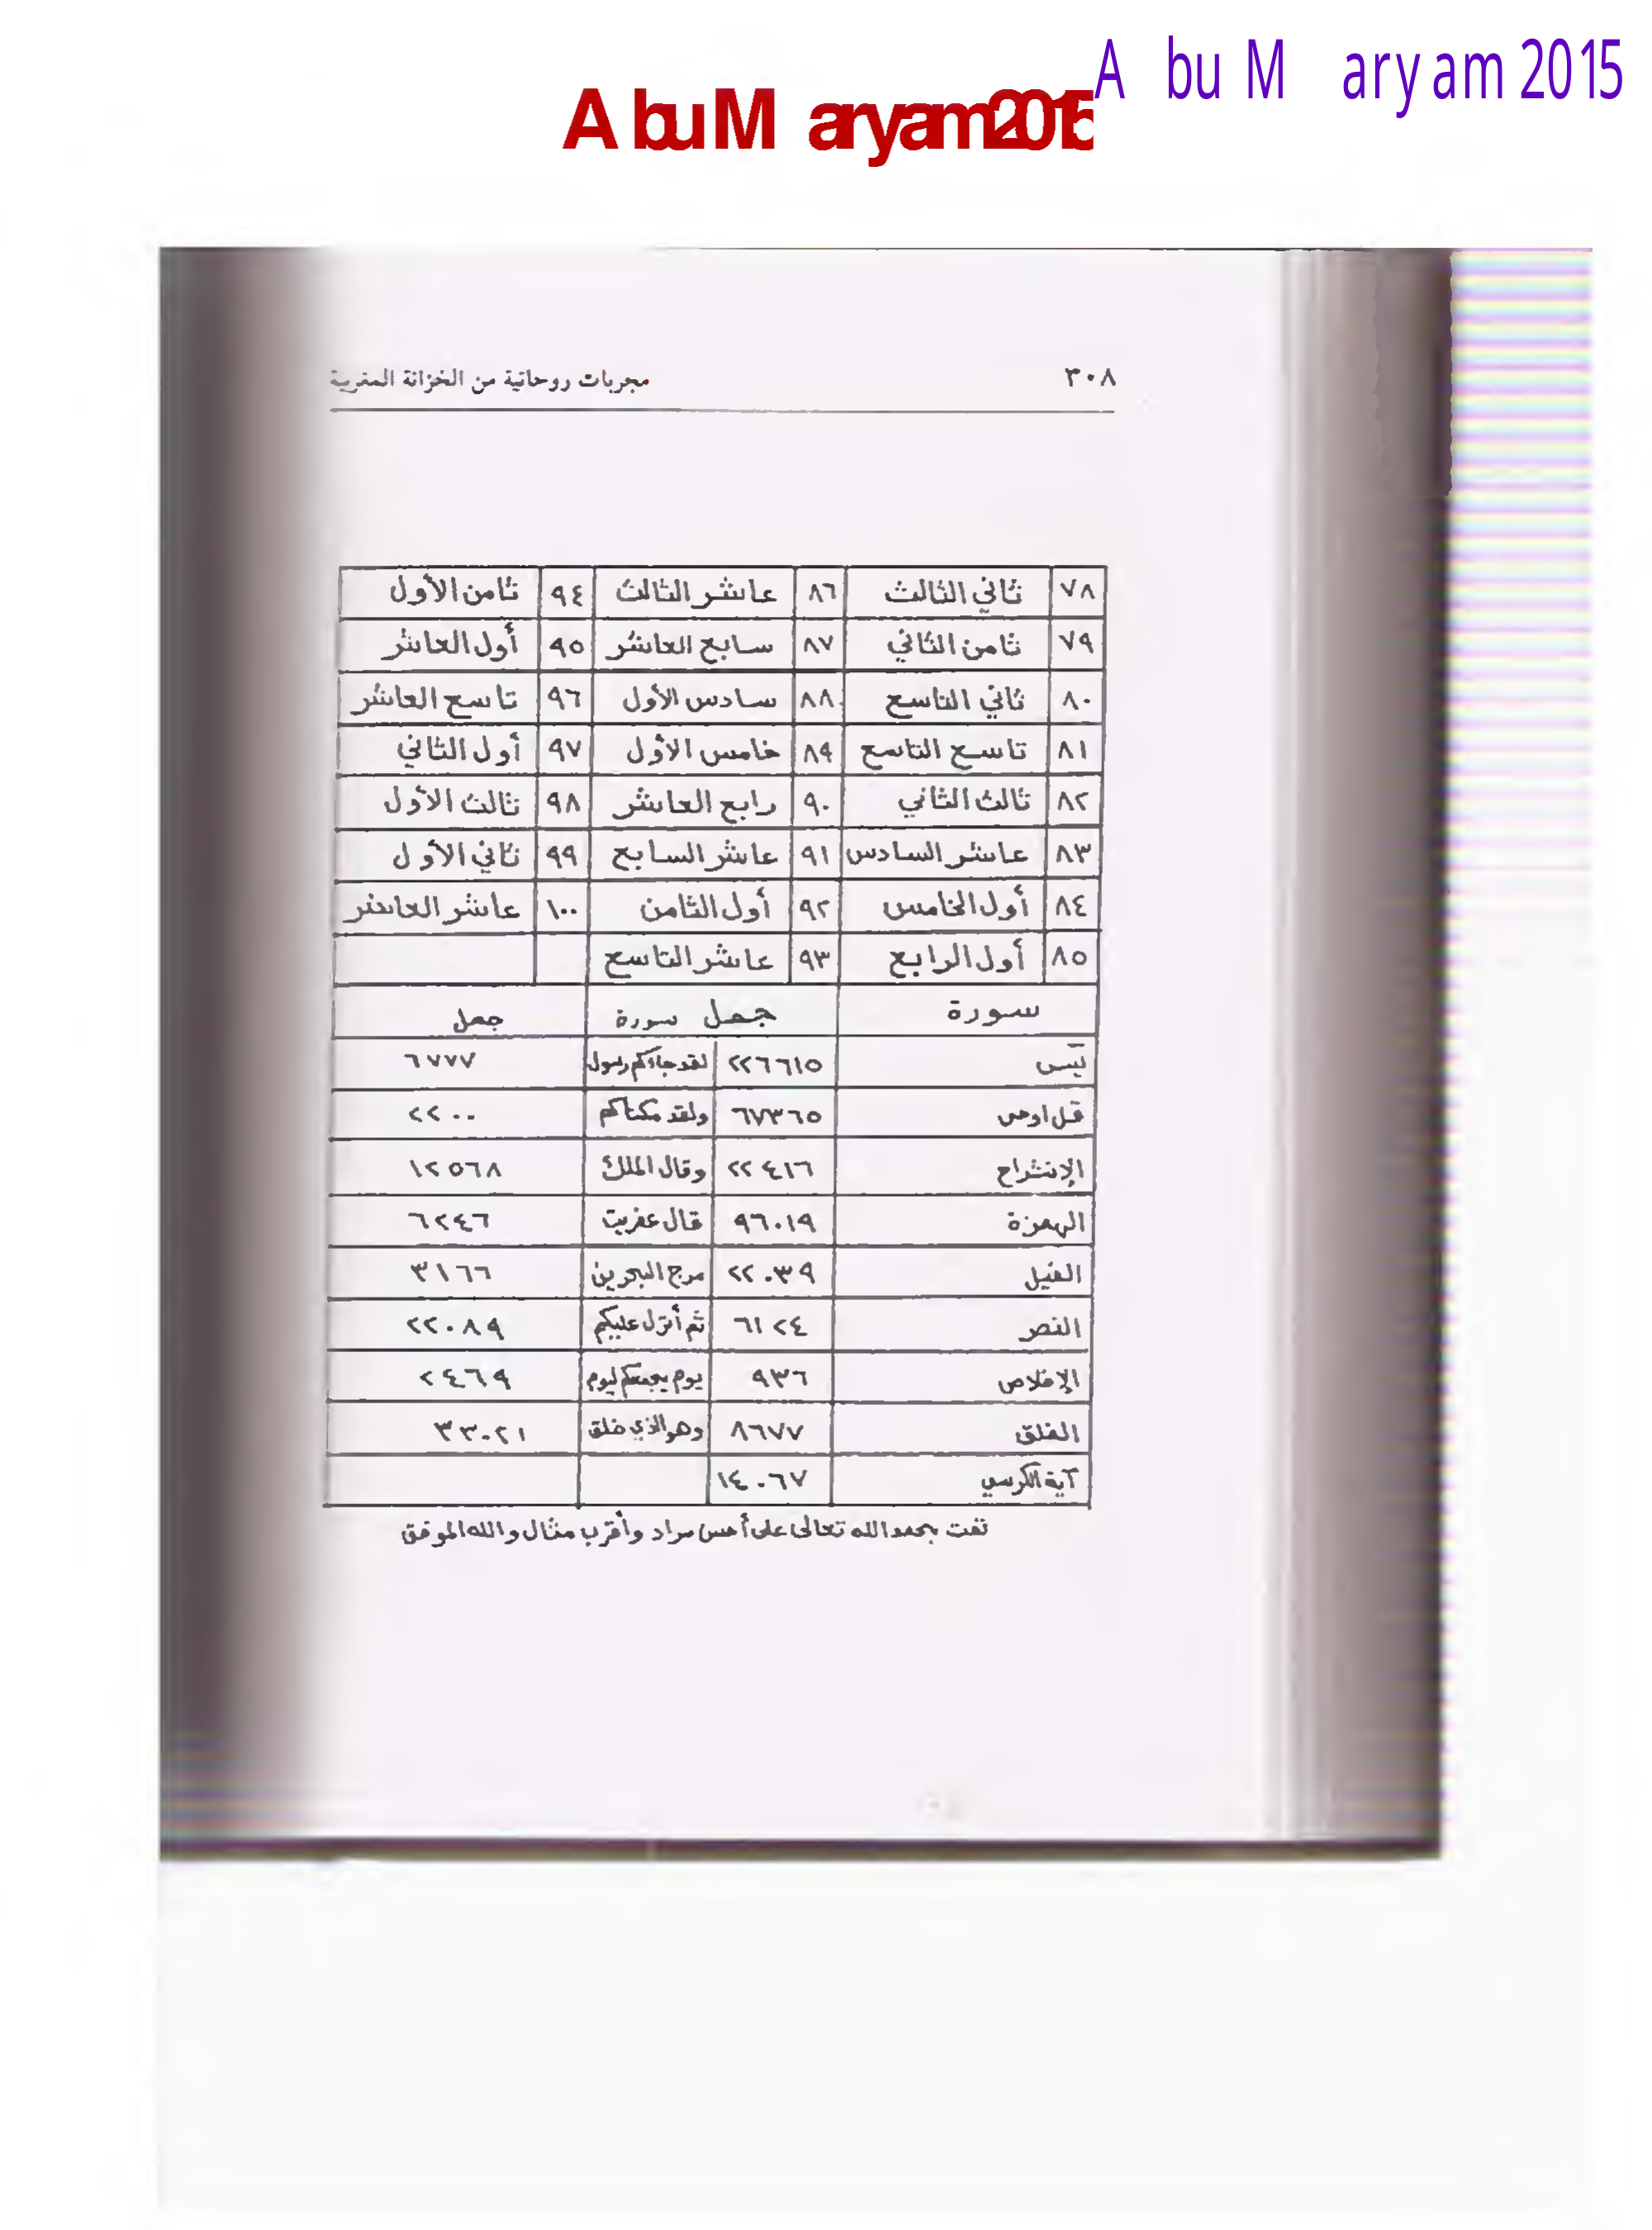 A bu M aryam 2015
A bu M aryam 2015
٣٠٨ مجربات روحانية من الخزانة المغربية
٧٨ ثاني الثالث ٨٦ عاشر الثالث ٩٤ ثامن الأول
٧٩ ثامن الثاني ٨٧ سابع العاشر ٩٥ أول العاشر
٨٠ ثاني التاسع ٨٨ سادس الأول ٩٦ تاسع العاشر
٨١ تاسع التاسع ٨٩ خامس الأول ٩٧ أول الثاني
٨٢ ثالث الثاني ٩٠ رابع العاشر ٩٨ ثالث الأول
٨٣ عاشر السادس ٩١ عاشر السابع ٩٩ ثاني الأول
٨٤ أول الخامس ٩٢ أول الثامن ١٠٠ عاشر العاشر
٨٥ أول الرابع ٩٣ عاشر التاسع
سورة جمل سورة جمل
يس ٢٢٦٦١٥ لقد جاءكم رسول ٦٧٧٧
قل اوحى ٦٧٣٦٥ ولقد مكناكم ٢٢٠٠
الإنشراح ٢٢٤١٦ وقال الملك ١٢٥٦٨
الهمزة ٩٦٠١٩ قال عفريت ٦٢٤٦
الفيل ٢٢٠٣٩ مرج البحرين ٣١٦٦
النصر ٦١٢٤ ثم أنزل عليكم ٢٢٠٨٩
الإخلاص ٩٣٦ يوم يجمعكم ليوم ٢٤٦٩
الفلق ٨٦٧٧ وهو الذي خلق ٣٣٠٢١
آية الكرسي ١٤٠٦٧
تمت بحمد الله تعالى على أحسن مراد وأقرب مثال والله الموفق